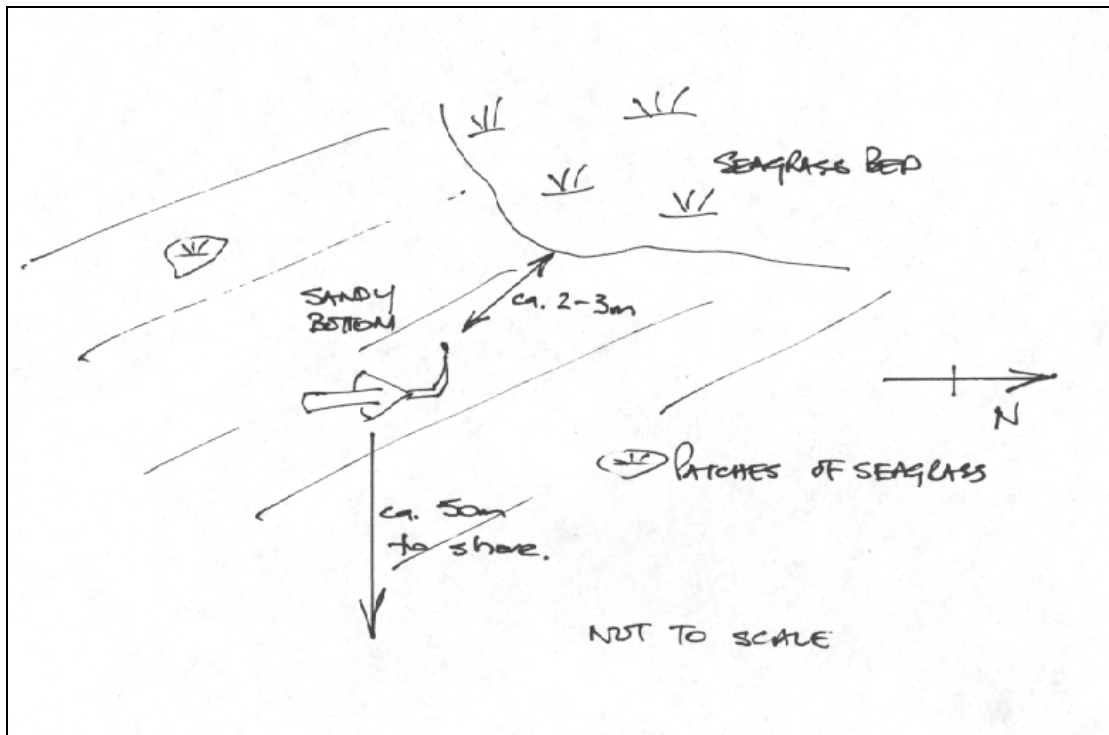 SEAGRASS BED
ca. 2-3m
SANDY
BOTTOM
N
PATCHES OF SEAGRASS
ca. 50m
to shore.
NOT TO SCALE